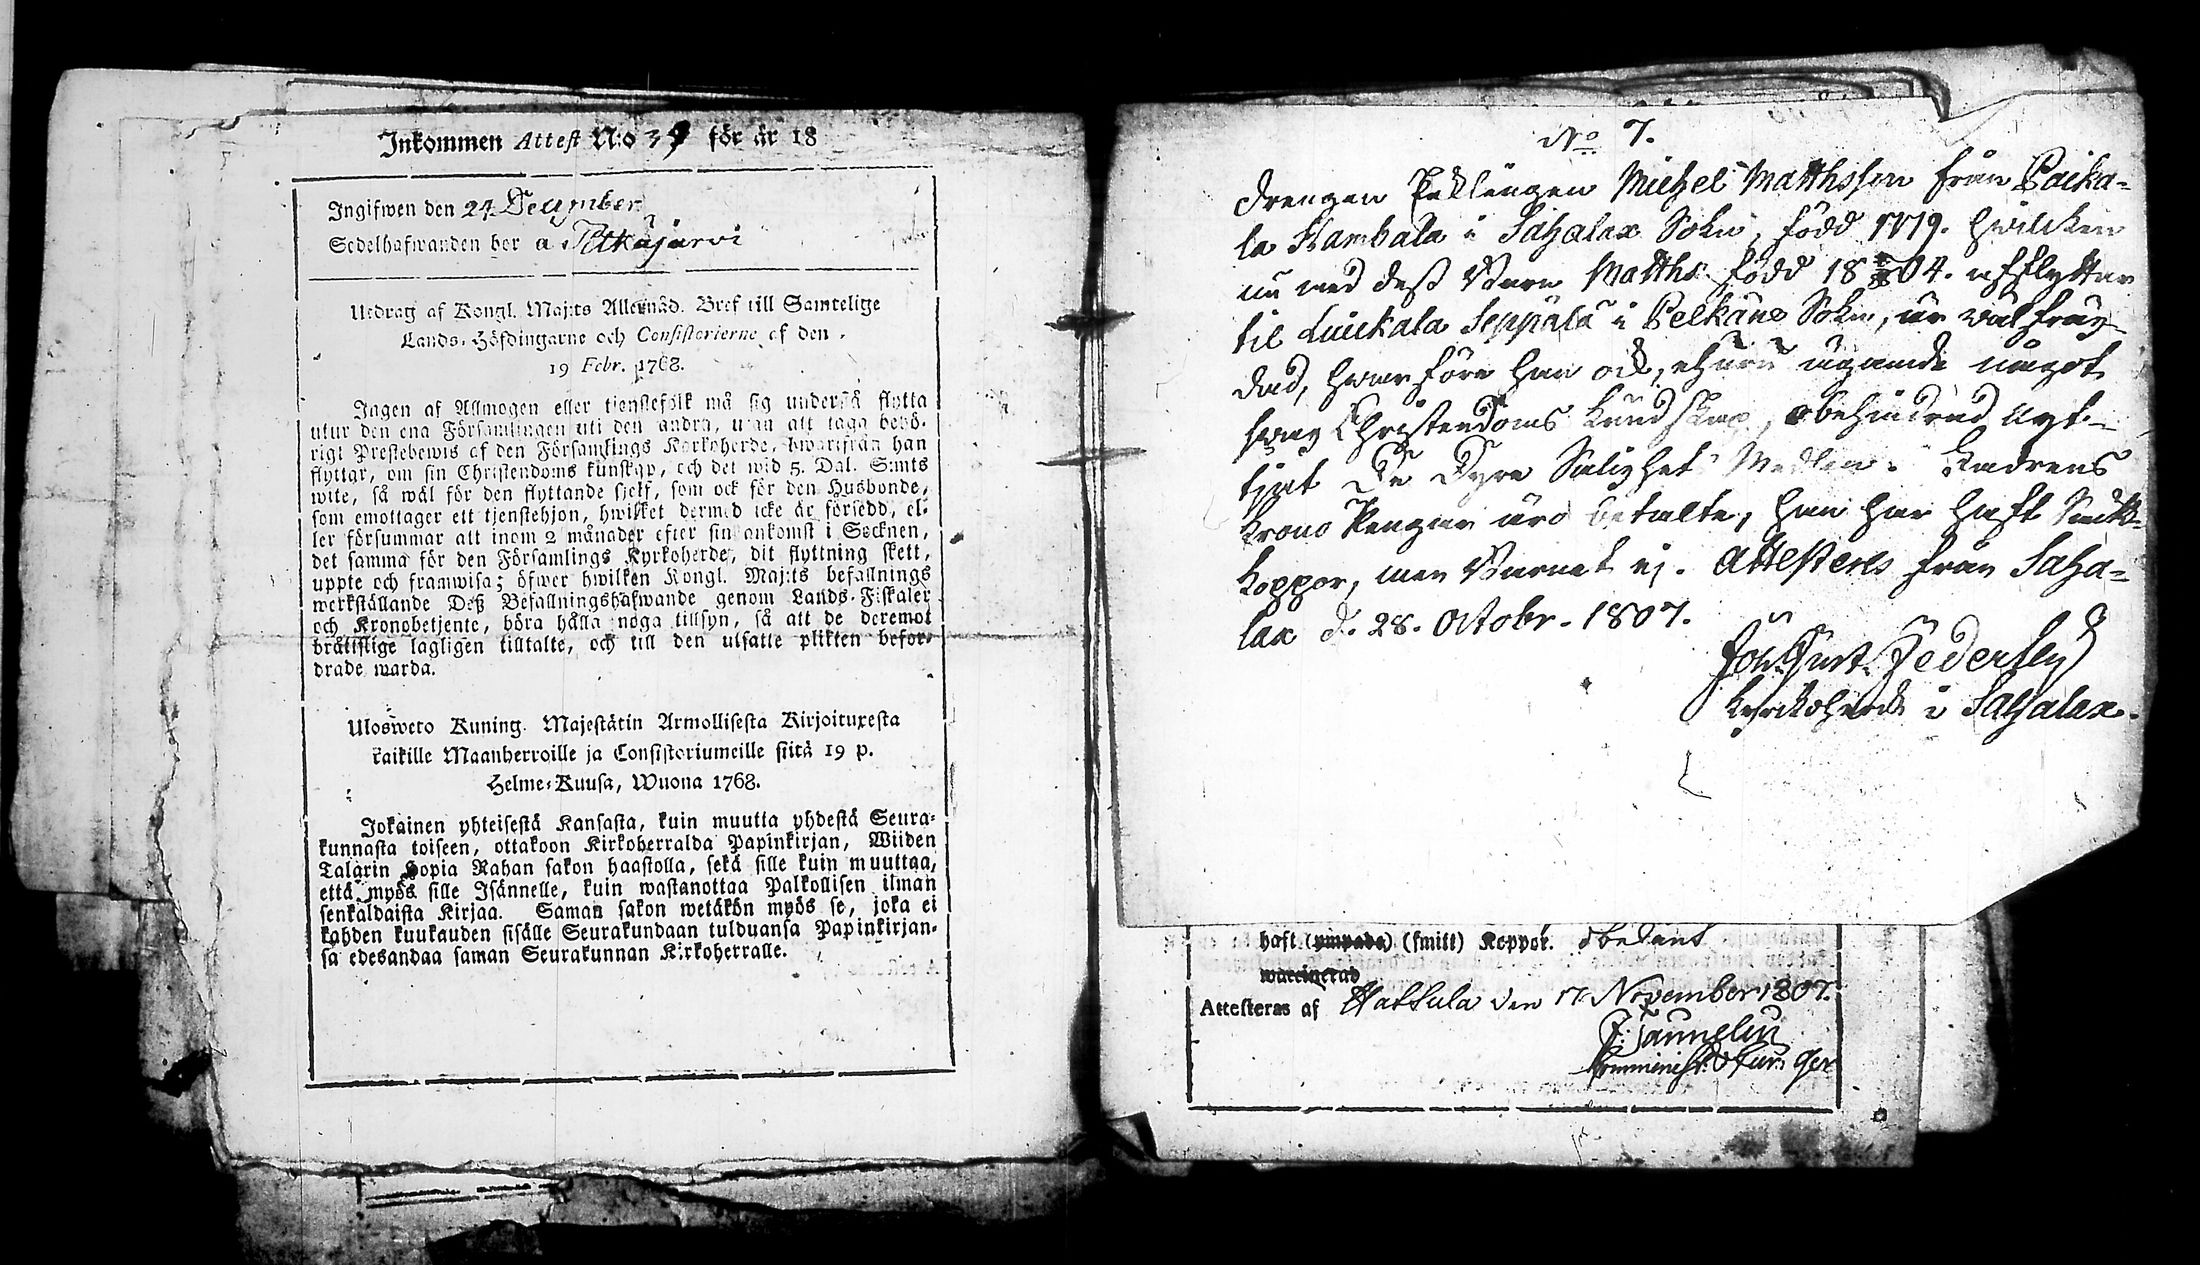 Inkommen Attest N:o 39 för år 18
Ingifwen den 24 December
Sedelhafwanden bor a Pitkäjärvi
Utdrag af Kongl. Maj:ts Allernåd. Bref till Samtelige
Lands-Höfdingarne och Consistorierne af den
19 Febr. 1768.
Ingen af Allmogen eller tjenstefolk må sig understå flytta
utur den ena Församlingen uti den andra, utan att taga behö-
rigt Prestebewis af den Församlings Kyrkoherde, hwarifrån han
flyttar, om sin Christendoms kunskap, och det wid 5. Dal. S:mts
wite, så wäl för den flyttande sjelf, som ock för den Husbonde,
som emottager ett tjenstehjon, hwilket dermed icke är försedd, el-
ler försummar att inom 2 månader efter sin ankomst i Socknen,
det samma för den Församlings Kyrkoherde, dit flyttning skett,
uppte och framwisa; öfwer hwilken Kongl. Maj:ts befallnings
werkställande Deß Befallningshafwande genom Lands-Fiskaler
och Kronobetjente, böra hålla noga tillsyn, så att de deremot
bråttslige lagligen tilltalte, och till den utsatte plikten befor-
drade warda.
Ulosweto Kuning. Majestätin Armollisesta Kirjoituxesta
kaikille Maanherroille ja Consistoriumeille siitä 19 p.
Helme-Kuusa, Wuona 1768.
Jokainen yhteisestä Kansasta, kuin muutta yhdestä Seura-
kunnasta toiseen, ottakoon Kirkoherralda Papinkirjan, Wiiden
Talarin Hopia Rahan sakon haastolla, sekä sille kuin muuttaa,
että myös sille Isännelle, kuin wastanottaa Palkollisen ilman
senkaldaista Kirjaa. Saman sakon wetäkön myös se, joka ei
kahden kuukauden sisälle Seurakundaan tulduansa Papinkirjan-
sa edesandaa saman Seurakunnan Kirkoherralle.
No 7.
Drengen Michel Matthsson från Paika-
la Hambala i Sahalax Sokn, född 1779. hwilcken
nu med dess Barn Matths född 1804. afflyttar
til Luickala Seppälä i Pelkäne Sokn, är wälfräg-
dad, hwarföre han ock, ehuru ägande något
swag Christendoms kundskap, obehindrad nyt-
tjat De Dyra Salighets Medlen. Ladrens
krono Pengar äro betalte, han har haft Smitt-
koppor, men Barnet ej. Attesteres från Saha-
lax d. 28. Octobr. 1807.
Joh. Gust. Federley
Kyrckoherde i Sahalax.
haft (ympade) (smitt) Koppor. obekant
Attesteras af Hattula den 17 November 1807.
F. Tannelin